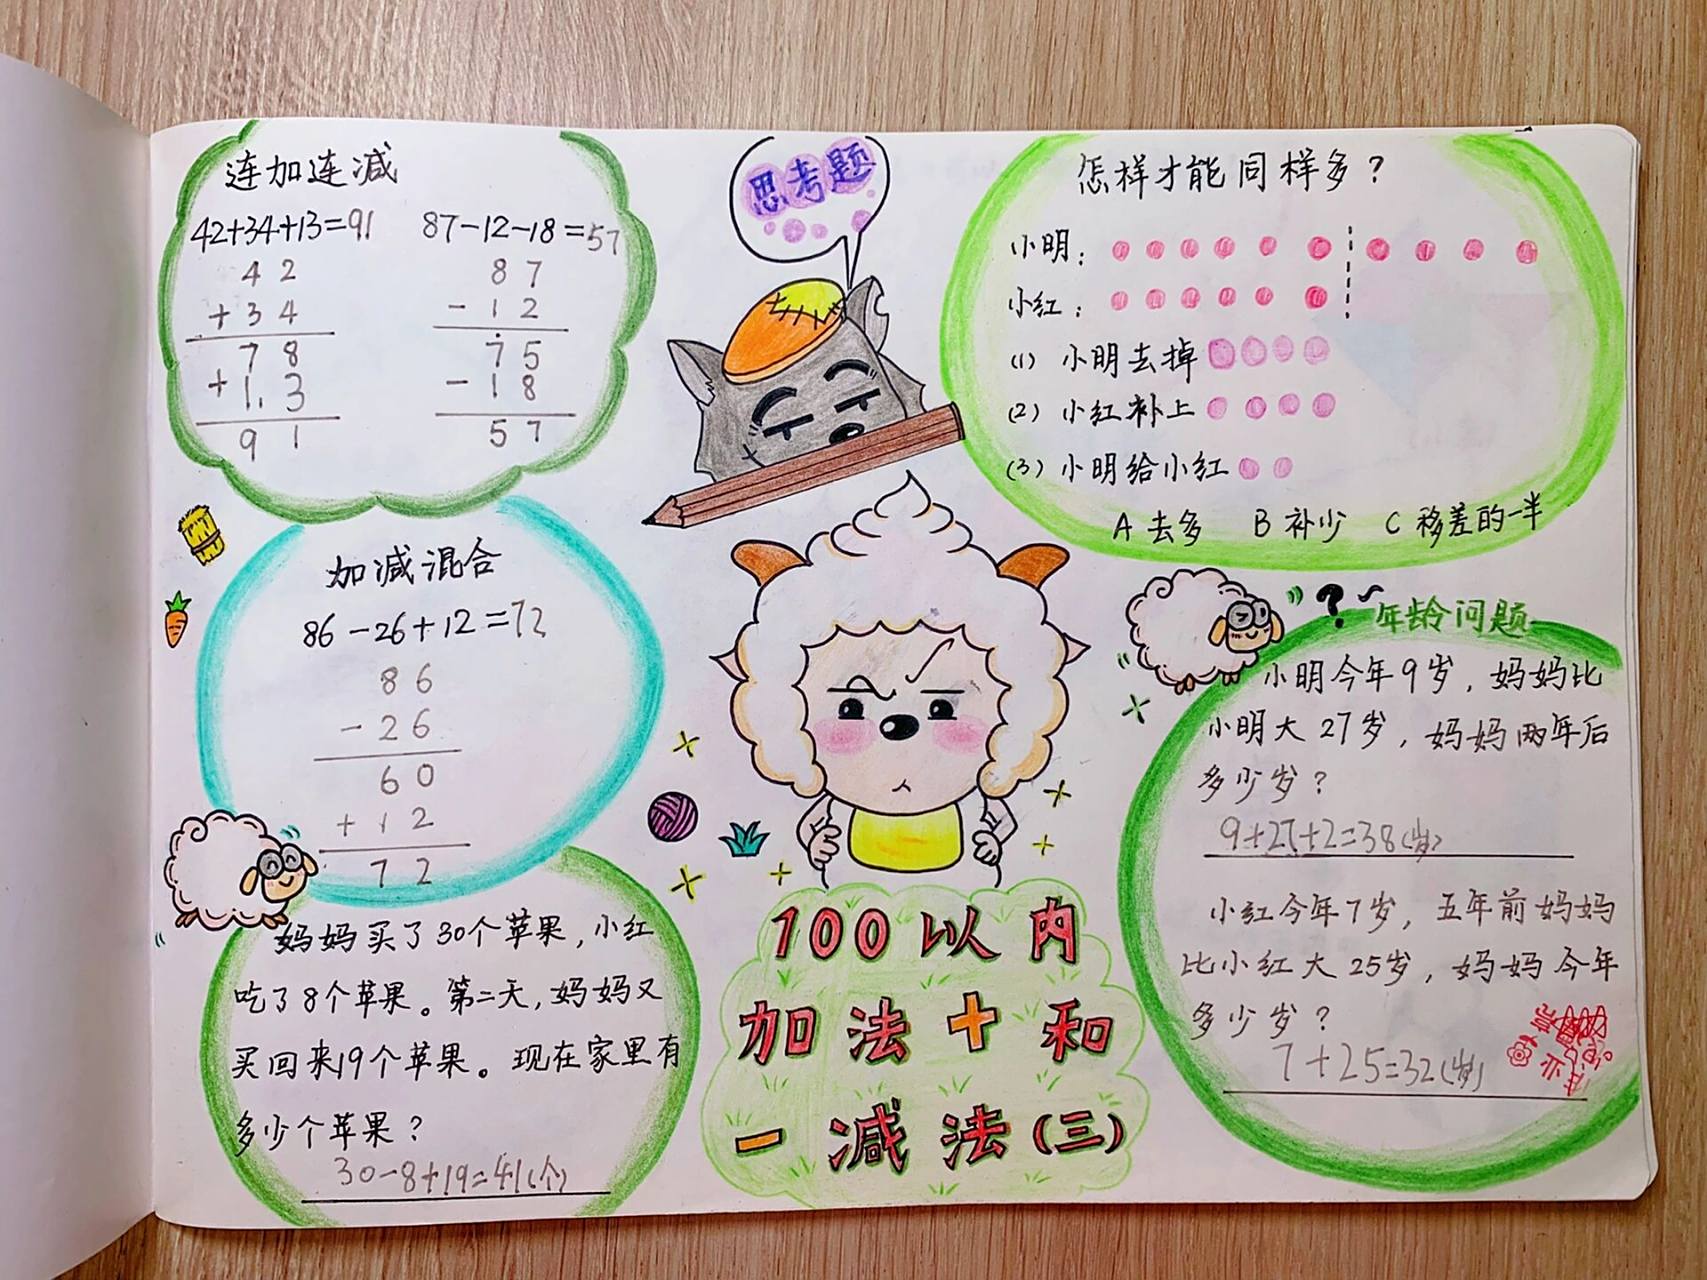 连加连减
42+34+13=91
42
+34
78
+13
91
87-12-18=57
87
-12
75
-18
57
思考题
怎样才能同样多？
小明：
小红：
(1) 小明去掉
(2) 小红补上
(3) 小明给小红
A 去多 B 补少 C 移差的一半
加减混合
86-26+12=72
86
-26
60
+12
72
妈妈买了30个苹果，小红
吃了8个苹果。第二天，妈妈又
买回来19个苹果。现在家里有
多少个苹果？
30-8+19=41(个)
100以内
加法+和
-减法(三)
? 年龄问题
小明今年9岁，妈妈比
小明大27岁，妈妈两年后
多少岁？
9+27+2=38(岁)
小红今年7岁，五年前妈妈
比小红大25岁，妈妈今年
多少岁？
7+25=32(岁)